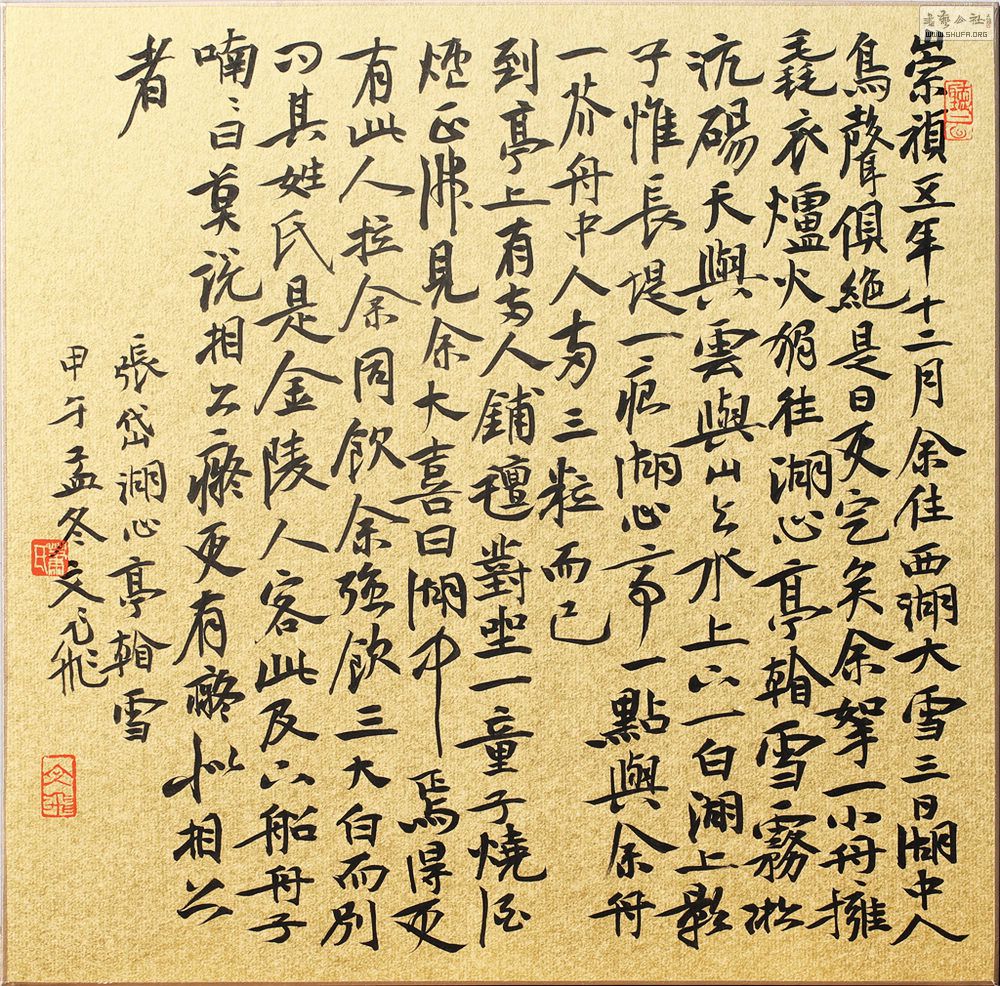 崇禎五年十二月余住西湖大雪三日湖中人
鳥聲俱絕是日更定矣余拏一小舟擁
毳衣爐火獨往湖心亭看雪霧凇
沆碭天與雲與山與水上下一白湖上影
子惟長堤一痕湖心亭一點與余舟
一芥舟中人兩三粒而已
到亭上有兩人鋪氊對坐一童子燒酒
爐正沸見余大喜曰湖中焉得更
有此人拉余同飲余強飲三大白而別
問其姓氏是金陵人客此及下船舟子
喃〻曰莫說相公癡更有癡似相公
者
張岱湖心亭看雪
甲午孟冬文飛
書藝公社
WWW.SHUFA.ORG